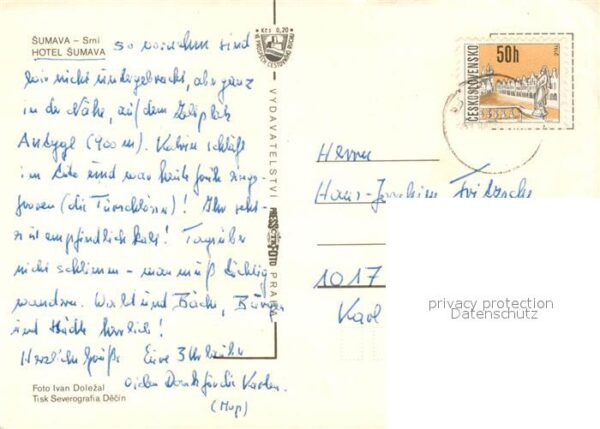 ŠUMAVA – Srní
HOTEL ŠUMAVA
so sind
wir nicht untergebracht, aber ganz
in der Nähe, auf dem Zeltplatz
Antýgl (900 m). Katrin schläft
im und war heute früh
(die Türschlösser)! Ihr
ist empfindlich kalt! Tagsüber
nicht schlimm – man muß tüchtig
wandern. Wald und Bäche, Berge
und herrlich!
Herzliche Grüße Eure 3
vielen Dank für die Karten.
Kčs 0,20
VYDAVATELSTVÍ PRESSFOTO PRAHA
ČESKOSLOVENSKO
50h
Telč
Herrn
Hans-Joachim Fritzsche
1017
Karl
privacy protection
Datenschutz
Foto Ivan Doležal
Tisk Severografia Děčín